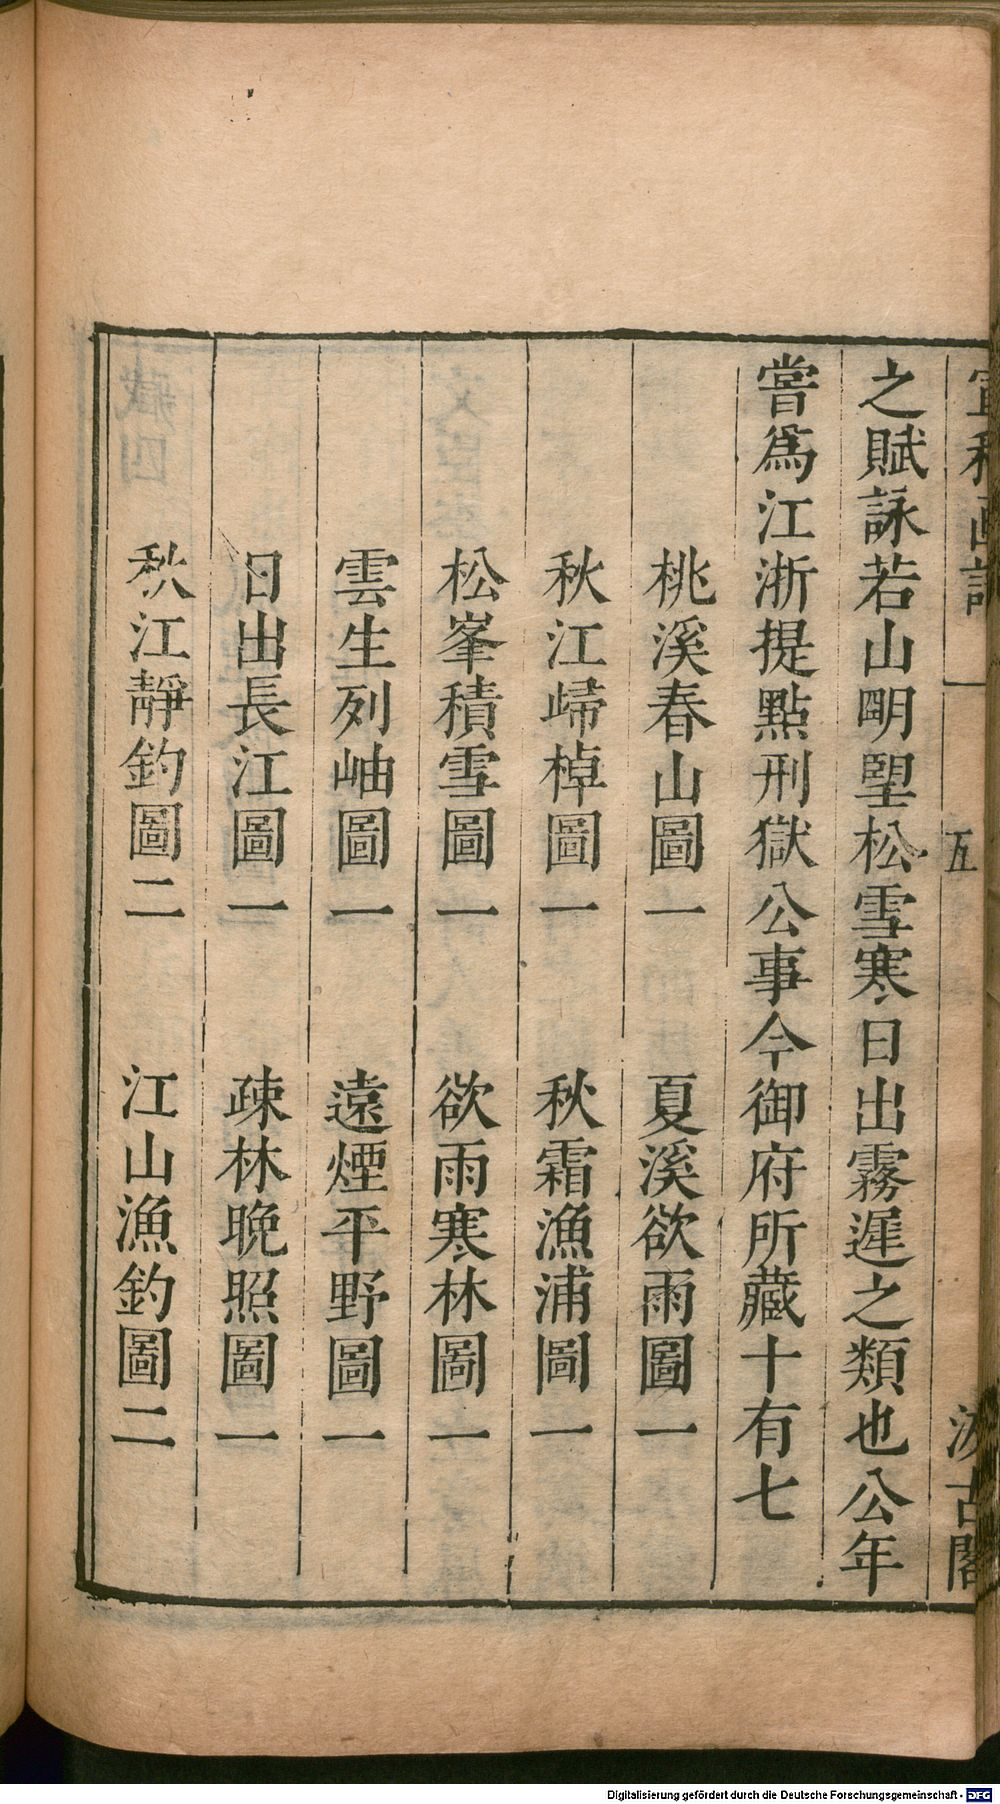 宣和画譜 五 汲古閣
之賦詠若山明望松雪寒日出霧遲之類也公年
嘗為江浙提點刑獄公事今御府所藏十有七
桃溪春山圖一 夏溪欲雨圖一
秋江歸棹圖一 秋霜漁浦圖一
松峯積雪圖一 欲雨寒林圖一
雲生列岫圖一 遠煙平野圖一
日出長江圖一 疎林晚照圖一
秋江靜釣圖二 江山漁釣圖二
Digitalisierung gefördert durch die Deutsche Forschungsgemeinschaft - DFG